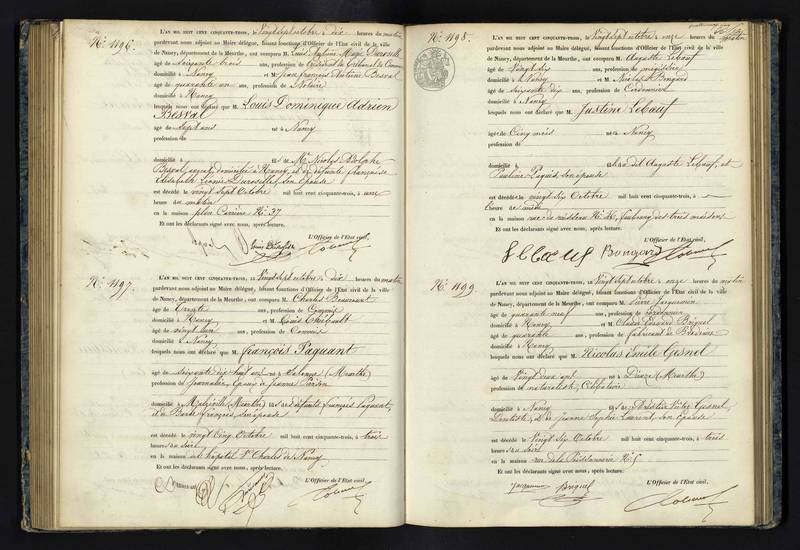 N° 1196.
L'AN MIL HUIT CENT CINQUANTE-TROIS, le Vingt sept octobre, dix heures du matin
pardevant nous adjoint au Maire délégué, faisant fonctions d'Officier de l'Etat civil de la ville
de Nancy, département de la Meurthe, ont comparu M. Louis Antoine
âgé de soixante trois ans, profession de Président du Tribunal de Commerce
domicilié à Nancy et M. Jean françois Antoine Besval
âgé de quarante un ans, profession de Notaire
domicilié à Nancy
lesquels nous ont déclaré que M. Louis Dominique Adrien
Besval
âgé de sept ans né à Nancy
profession de
domicilié à fils de Mr Nicolas Adolphe
Besval, domicilié à Nancy, et de défunte françoise
Elisabeth Léonie Duroselle, son épouse
est décédé le vingt Sept Octobre mil huit cent cinquante-trois, à une
heure du matin
en la maison place Carrière N° 37
Et ont les déclarants signé avec nous, après lecture.
L'Officier de l'Etat civil,
N° 1197.
L'AN MIL HUIT CENT CINQUANTE-TROIS, le Vingt sept octobre, dix heures du matin
pardevant nous adjoint au Maire délégué, faisant fonctions d'Officier de l'Etat civil de la ville
de Nancy, département de la Meurthe, ont comparu M. Charles
âgé de trente ans, profession de Commis
domicilié à Nancy et M. Louis Thiébault
âgé de vingt un ans, profession de Commis
domicilié à Nancy
lesquels nous ont déclaré que M. françois Paquant
âgé de soixante dix huit ans né à (Meurthe)
profession de journalier, époux de Jeanne
domicilié à (Meurthe) fils de défunts françois Paquant,
et de Barbe françois, son épouse
est décédé le vingt Cinq Octobre mil huit cent cinquante-trois, à trois
heures du soir
en la maison hôpital St Charles de Nancy
Et ont les déclarants signé avec nous, après lecture.
L'Officier de l'Etat civil,
N° 1198.
L'AN MIL HUIT CENT CINQUANTE-TROIS, le Vingt sept octobre, onze heures du matin
pardevant nous adjoint au Maire délégué, faisant fonctions d'Officier de l'Etat civil de la ville
de Nancy, département de la Meurthe, ont comparu M. Auguste Lebœuf
âgé de Vingt six ans, profession de
domicilié à Nancy et M. Nicolas Bongard
âgé de soixante dix ans, profession de Cordonnier
domicilié à Nancy
lesquels nous ont déclaré que M. Justine Lebœuf
âgé de Cinq mois né à Nancy
profession de
domicilié à fils de Auguste Lebœuf, et
Pauline Paquis, son épouse
est décédé le vingt six Octobre mil huit cent cinquante-trois, à
heure de midi
en la maison rue du ruisseau N° 26, faubourg des trois maisons
Et ont les déclarants signé avec nous, après lecture.
L'Officier de l'Etat civil,
Lebœuf Bongard
N° 1199.
L'AN MIL HUIT CENT CINQUANTE-TROIS, le Vingt sept octobre, onze heures du matin
pardevant nous adjoint au Maire délégué, faisant fonctions d'Officier de l'Etat civil de la ville
de Nancy, département de la Meurthe, ont comparu M. Pierre Jacquemin
âgé de quarante neuf ans, profession de
domicilié à Nancy et M. Edouard Briquel
âgé de quarante ans, profession de fabricant de Broderies
domicilié à Nancy
lesquels nous ont déclaré que M. Nicolas Emile Gesnel
âgé de Vingt deux ans né à Dieuze (Meurthe)
profession de naturaliste, Célibataire
domicilié à Nancy fils de Victor Gesnel,
Dentiste, et de Jeanne Sophie Laurent, son épouse
est décédé le Vingt six Octobre mil huit cent cinquante-trois, à trois
heures du soir
en la maison rue de la Poissonnerie N° 5
Et ont les déclarants signé avec nous, après lecture.
L'Officier de l'Etat civil,
Jacquemin Briquel